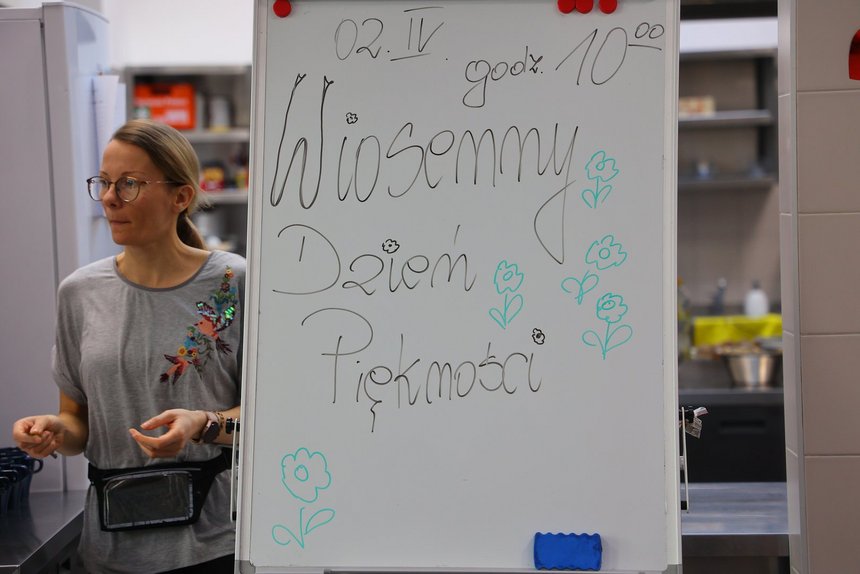 02. IV. godz. 10⁰⁰
Wiosenny
Dzień
Piękności